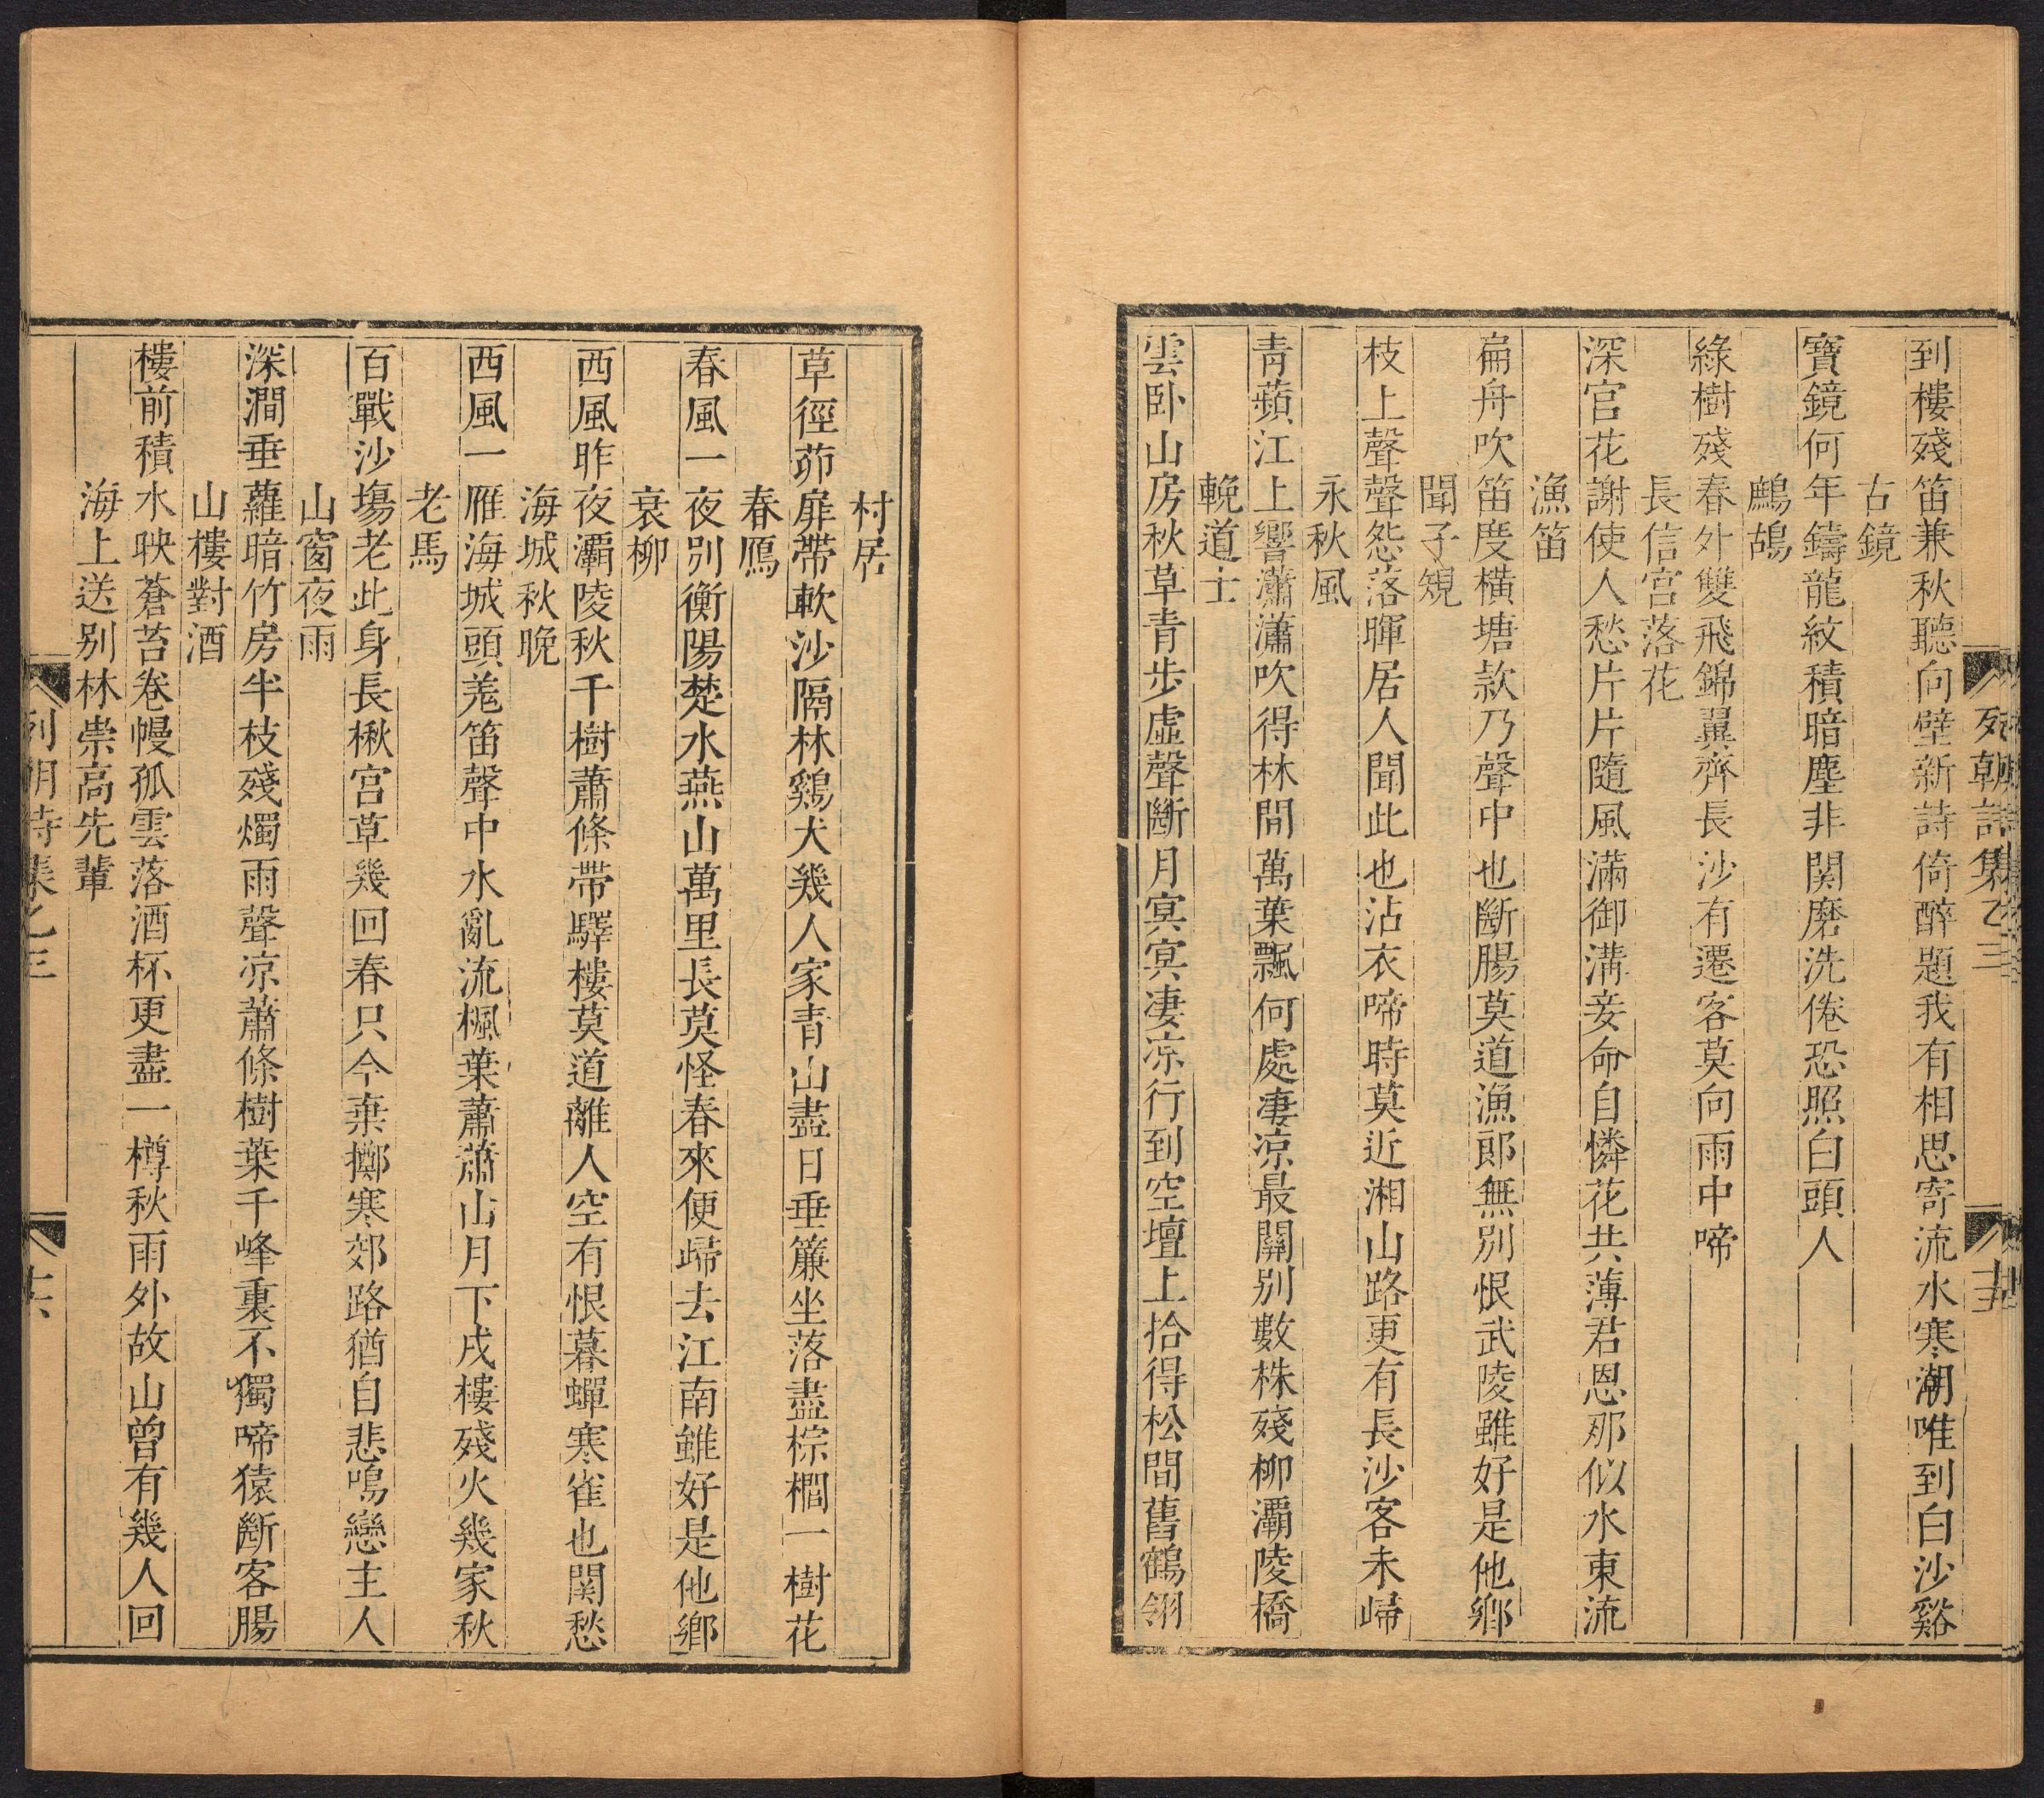 列朝詩集乙三
到樓殘笛兼秋聽向壁新詩倚醉題我有相思寄流水寒潮唯到白沙谿
古鏡
寶鏡何年鑄龍紋積暗塵非関磨洗倦恐照白頭人
鷓鴣
綠樹殘春外雙飛錦翼齊長沙有遷客莫向雨中啼
長信宮落花
深宮花謝使人愁片片隨風滿御溝妾命自憐花共薄君恩那似水東流
漁笛
扁舟吹笛度橫塘款乃聲中也斷腸莫道漁郎無別恨武陵雖好是他鄉
聞子規
枝上聲聲怨落暉居人聞此也沾衣啼時莫近湘山路更有長沙客未歸
永秋風
青蘋江上響瀟瀟吹得林間萬葉飄何處凄凉最關別數株殘柳灞陵橋
輓道士
雲卧山房秋草青步虛聲斷月冥冥凄凉行到空壇上拾得松間舊鶴翎
村居
草徑茆扉帶軟沙隔林鷄犬幾人家青山盡日垂簾坐落盡棕櫚一樹花
春鴈
春風一夜別衡陽楚水燕山萬里長莫怪春來便歸去江南雖好是他鄉
衰柳
西風昨夜灞陵秋千樹蕭條帶驛樓莫道離人空有恨暮蟬寒雀也関愁
海城秋晚
西風一雁海城頭羗笛聲中水亂流楓葉蕭蕭山月下戍樓殘火幾家秋
老馬
百戰沙塲老此身長楸宮草幾回春只今棄擲寒郊路猶自悲鳴戀主人
山窗夜雨
深澗垂蘿暗竹房半枝殘燭雨聲凉蕭條樹葉千峰裏不獨啼猿斷客腸
山樓對酒
樓前積水映蒼苔卷幔孤雲落酒杯更盡一樽秋雨外故山曾有幾人回
海上送別林崇高先輩
列朝詩集乙三
十六